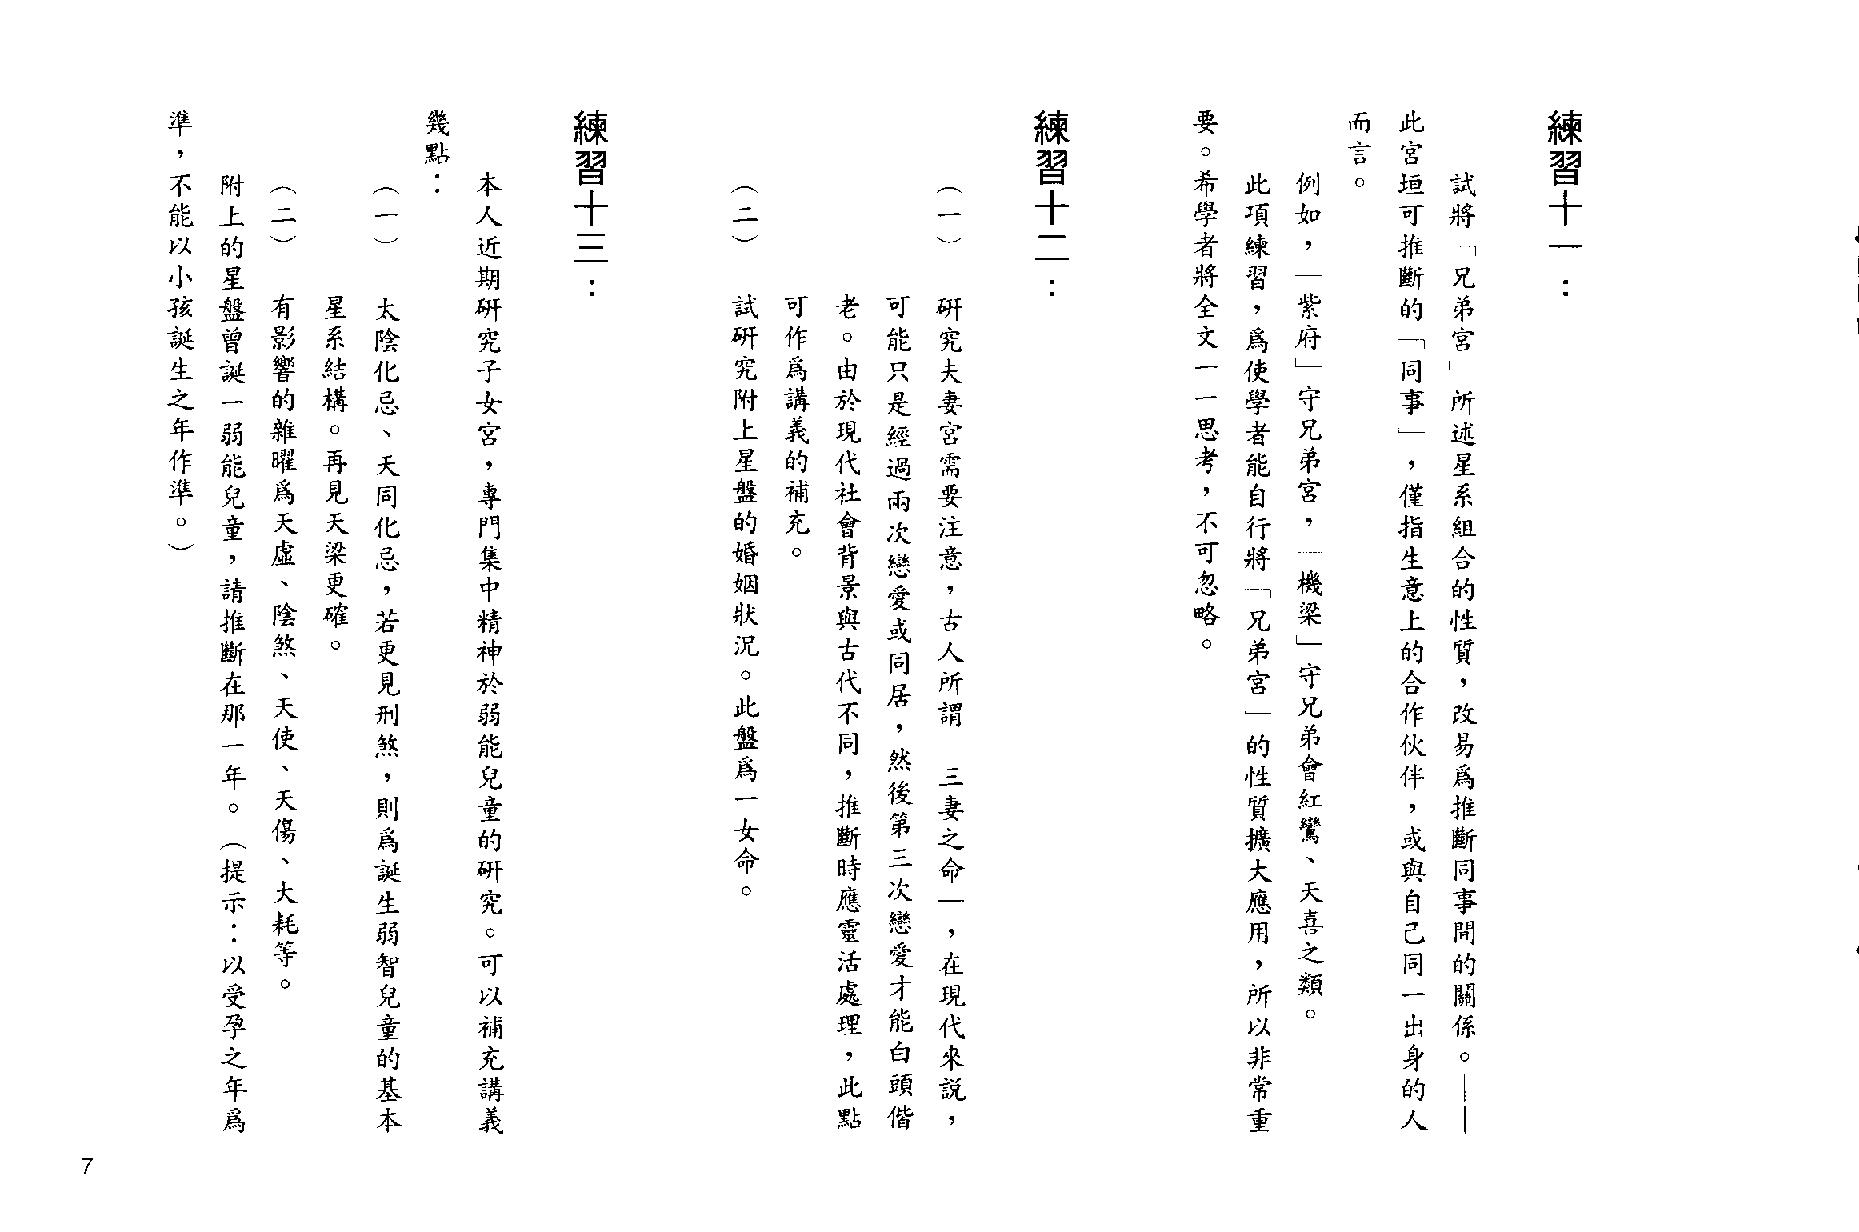 練習十一：
試將「兄弟宮」所述星系組合的性質，改易爲推斷同事間的關係。——
此宮垣可推斷的「同事」，僅指生意上的合作伙伴，或與自己同一出身的人
而言。
例如，「紫府」守兄弟宮，「機梁」守兄弟會紅鸞、天喜之類。
此項練習，爲使學者能自行將「兄弟宮」的性質擴大應用，所以非常重
要。希學者將全文一一思考，不可忽略。
練習十二：
（一）　研究夫妻宮需要注意，古人所謂　三妻之命」，在現代來説，
可能只是經過兩次戀愛或同居，然後第三次戀愛才能白頭偕
老。由於現代社會背景與古代不同，推斷時應靈活處理，此點
可作爲講義的補充。
（二）　試研究附上星盤的婚姻狀況。此盤爲一女命。
練習十三：
本人近期研究子女宮，專門集中精神於弱能兒童的研究。可以補充講義
幾點：
（一）　太陰化忌、天同化忌，若更見刑煞，則爲誕生弱智兒童的基本
星系結構。再見天梁更確。
（二）　有影響的雜曜爲天虛、陰煞、天使、天傷、大耗等。
附上的星盤曾誕一弱能兒童，請推斷在那一年。（提示：以受孕之年爲
準，不能以小孩誕生之年作準。）
7